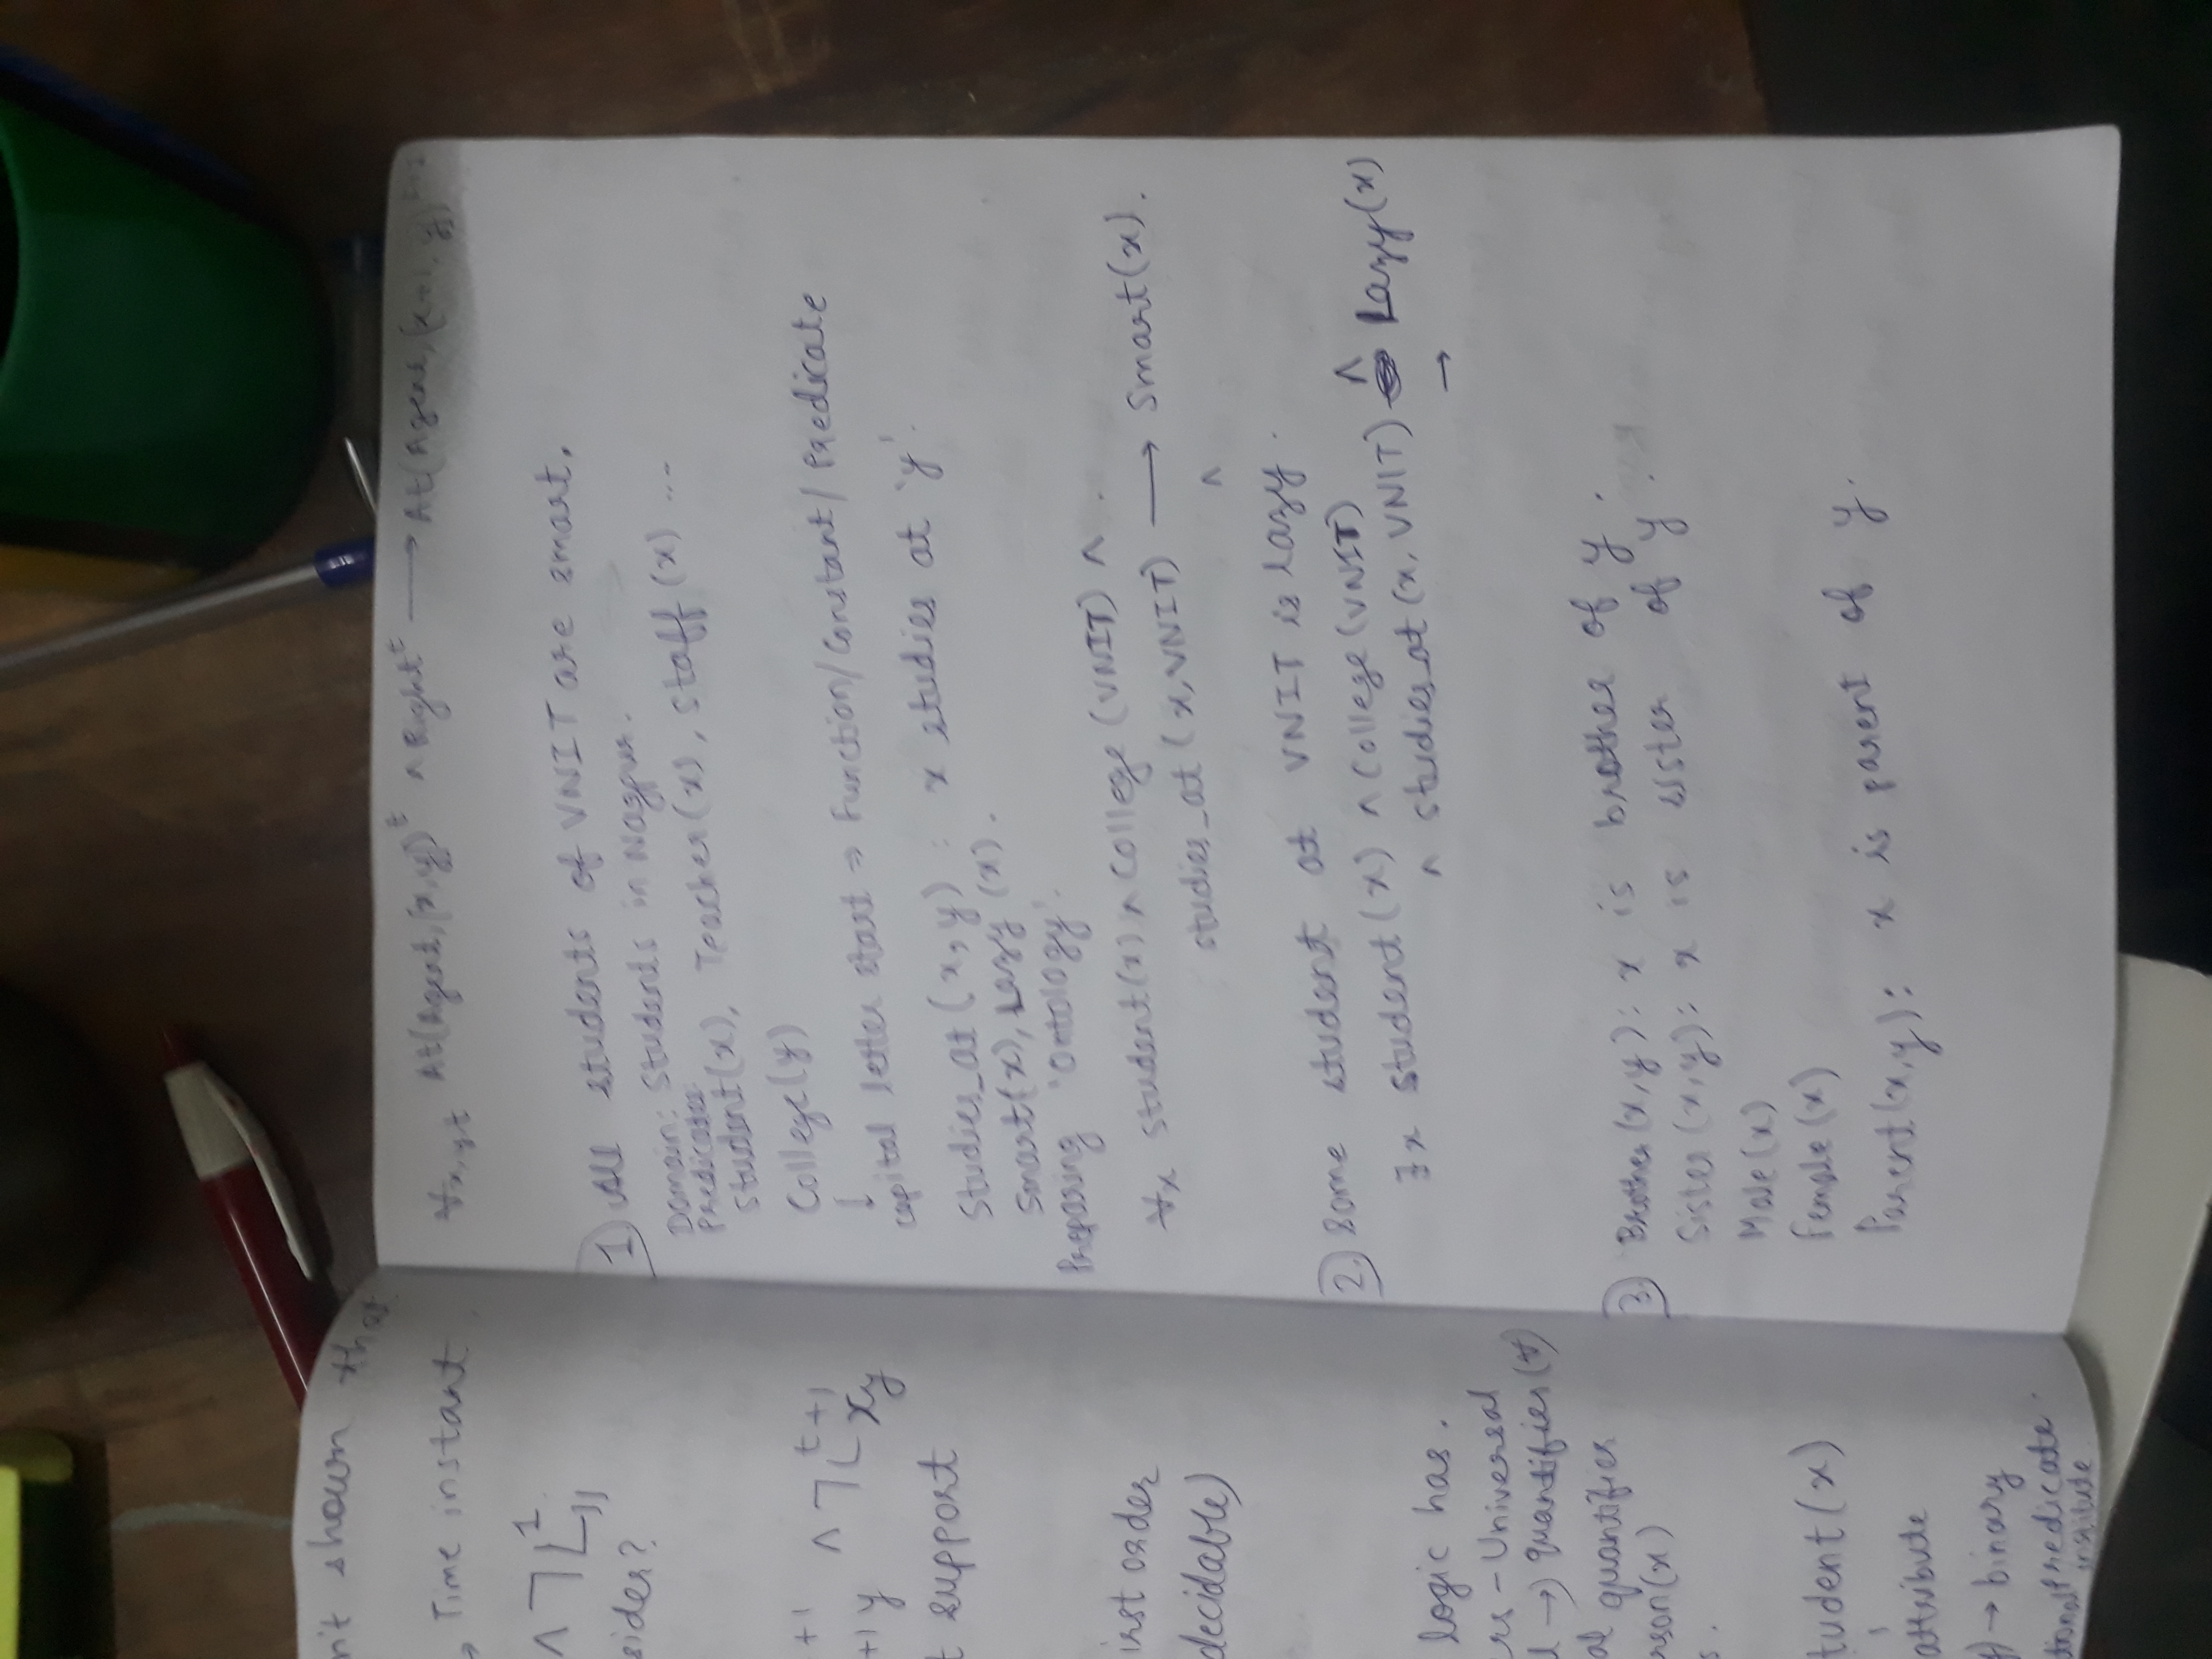 n't shown that
→ Time instant
∧ ¬L¹₁₁
sider?
t+1 ∧ ¬L^t+1 xy
+1 y
t support
irst order
decidable)
logic has.
rs - Universal
l →) quantifier (∀)
al quantifier
rson(x)
s.
tudent(x)
attribute
y) → binary
tional predicate.
institute
∀x,y,t At(Agent,[x,y])^t ∧ Right^t ⟶ At(Agent,[x+1,y])^t+1
1.) All students of VNIT are smart.
Domain: Students in Nagpur.
Predicates:
Student(x), Teacher(x), Staff(x) ....
College(y)
↓
capital letter start ⇒ Function/Constant/Predicate
Studies_at(x,y) : x studies at 'y'.
Smart(x), Lazy(x).
Preparing 'Ontology'.
∀x Student(x) ∧ College(VNIT) ∧
studies_at(x,VNIT) ⟶ Smart(x).
∧
2.) Some student at VNIT is lazy.
∃x student(x) ∧ College(VNIT)
∧ studies_at(x, VNIT) ∧ Lazy(x)
→
3.) Brother(x,y): x is brother of y.
Sister(x,y): x is sister of y.
Male(x)
Female(x)
Parent(x,y): x is parent of y.